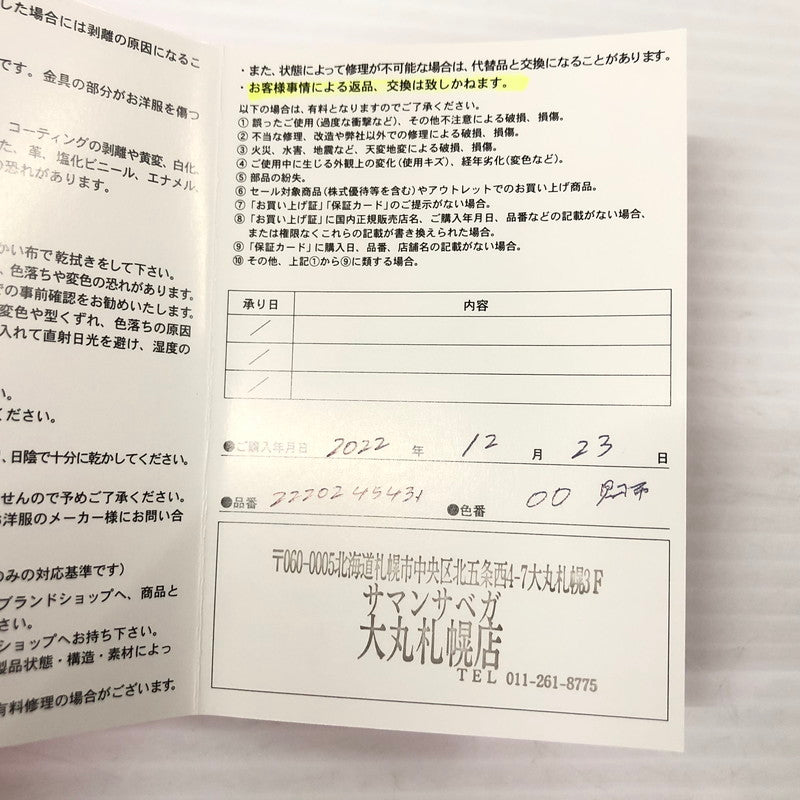 した場合には剥離の原因になるこ
です。金具の部分がお洋服を傷つ
コーティングの剥離や黄変、白化、
た、革、塩化ビニール、エナメル、
恐れがあります。
かい布で乾拭きをして下さい。
、色落ちや変色の恐れがあります。
での事前確認をお勧めいたします。
変色や型くずれ、色落ちの原因
入れて直射日光を避け、湿度の
い。
ください。
、日陰で十分に乾かしてください。
せんので予めご了承ください。
お洋服のメーカー様にお問い合
のみの対応基準です)
ブランドショップへ、商品と
さい。
ショップへお持ち下さい。
製品状態・構造・素材によっ
有料修理の場合がございます。
・また、状態によって修理が不可能な場合は、代替品と交換になることがあります。
・お客様事情による返品、交換は致しかねます。
以下の場合は、有料となりますのでご了承ください。
① 誤ったご使用(過度な衝撃など)、その他不注意による破損、損傷。
② 不当な修理、改造や弊社以外での修理による破損、損傷。
③ 火災、水害、地震など、天変地変による破損、損傷。
④ ご使用中に生じる外観上の変化(使用キズ)、経年劣化(変色など)。
⑤ 部品の紛失。
⑥ セール対象商品(株式優待等を含む)やアウトレットでのお買い上げ商品。
⑦ 「お買い上げ証」「保証カード」のご提示がない場合。
⑧ 「お買い上げ証」に国内正規販売店名、ご購入年月日、品番などの記載がない場合、
または権限なくこれらの記載が書き換えられた場合。
⑨ 「保証カード」に購入日、品番、店舗名の記載がない場合。
⑩ その他、上記①から⑨に類する場合。
承り日 内容
／
／
／
●ご購入年月日 2022 年 12 月 23 日
●品番 2220245431 ●色番 00
〒060-0005北海道札幌市中央区北五条西4-7大丸札幌3F
サマンサベガ
大丸札幌店
TEL 011-261-8775